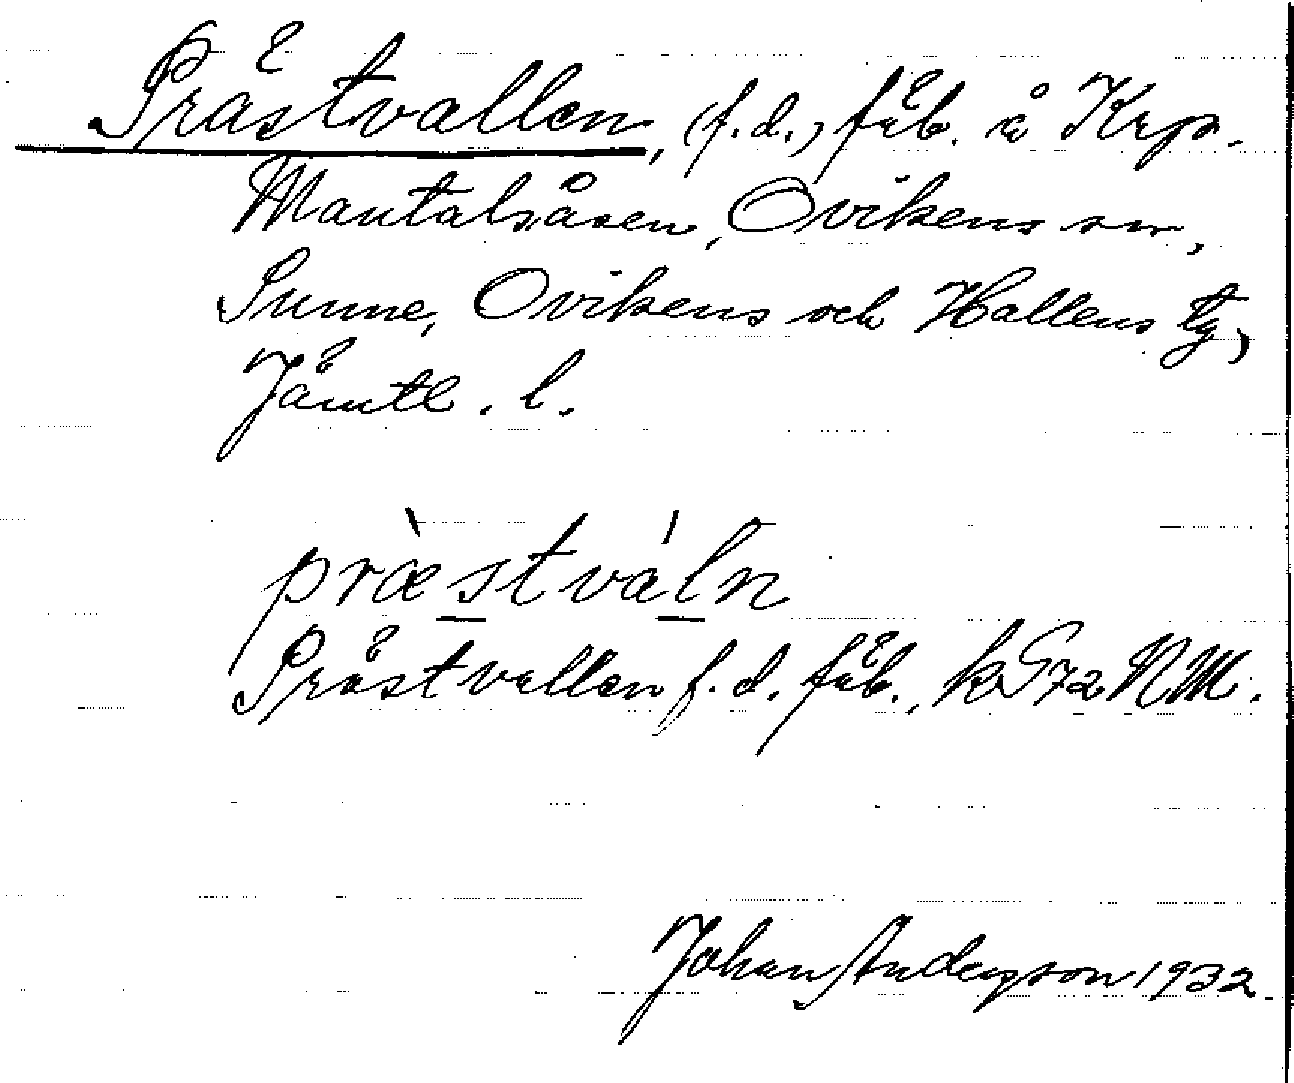 Prästvallen, (f.d.) fäb. å Krp.
Mantalsåsen, Ovikens sn,
Sunne, Ovikens och Hallens tg,
Jämtl. l.
præstvaln
Prästvallen f.d. fäb., kS72NM.
Johan Anderson 1932.